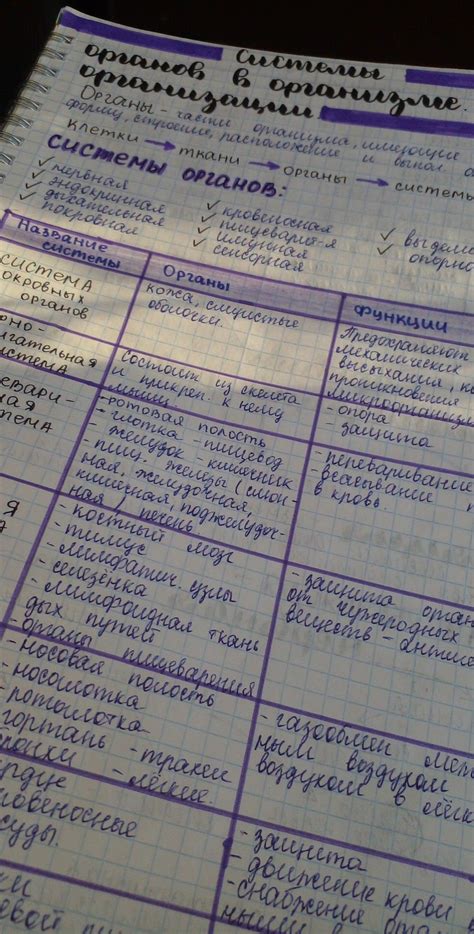 Системы
органов в организме
организации
Органы - части организма, имеющие
форму, строение, расположение и выпол
клетки → ткани → органы → системы
системы органов:
✓ нервная
✓ эндокринная
✓ дыхательная
✓ покровная
✓ кровеносная
✓ пищеварит-я
✓ имунная
✓ сенсорная
✓ выдели
✓ опорно
Название
системы
Органы
Функции
система
покровных
органов
кожа, слизистые
оболочки.
Предохраняют
механических
высыхания, по
проникновения
микроорганизм
рно-
игательная
истема
Состоит из скелета
и прикреп. к нему
мышц
- опора
- защита
щевари-
ная
стема
- ротовая полость
- глотка - пищевод
- желудок - кишечник
- пищ. железы (слюн-
ная, желудочная,
кишечная, поджелудоч-
ная) печень
- переваривание
- всасывание
в кровь.
я
- костный мозг
- тимус
- лимфатич. узлы
- селезёнка
- лимфоидная ткань
дых путей
- органы пищеварения
- защита орган
от чужеродных
веществ - антиге
- носовая полость
- носоглотка
- ротоглотка
гортань - трахеи
бронхи - лёгкие.
- газообмен меж
ным воздухом
воздухом в лёгк
сердце
кровеносные
суды.
- защита
- движение крови
- снабжение орга
ными в